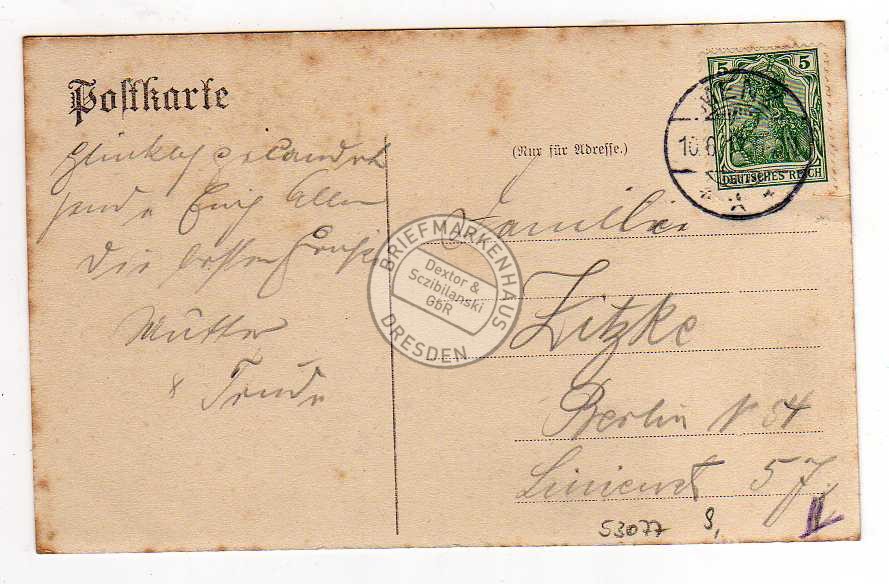 Postkarte
Glücklich gelandet
sende Euch Allen
die besten Grüße
Mutter
& Trude
(Nur für Adresse.)
5 5
DEUTSCHES REICH
10.8.
Familie
Litzke
Berlin N 54
Linienst 57
53077 9,
BRIEFMARKENHAUS
Dextor &
Sczibilanski
GbR
DRESDEN